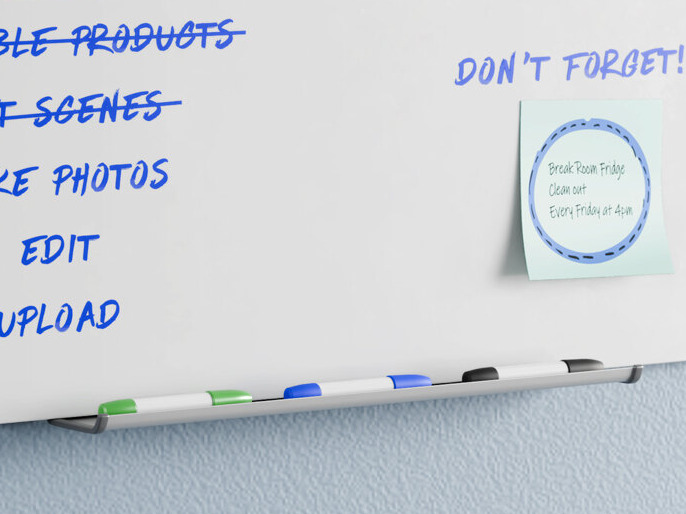 PRODUCTS
SCENES
PHOTOS
EDIT
UPLOAD
DON'T FORGET!
Break Room Fridge
Clean out
Every Friday at 4pm